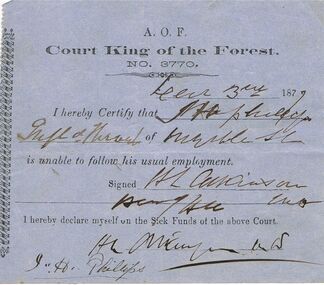 A. O. F.
Court King of the Forest.
NO. 3770.
3rd 187
I hereby Certify that J H Phillips
of Myrtle St
is unable to follow his usual employment.
Signed H L Atkinson
I hereby declare myself on the Sick Funds of the above Court.
J. H. Phillips